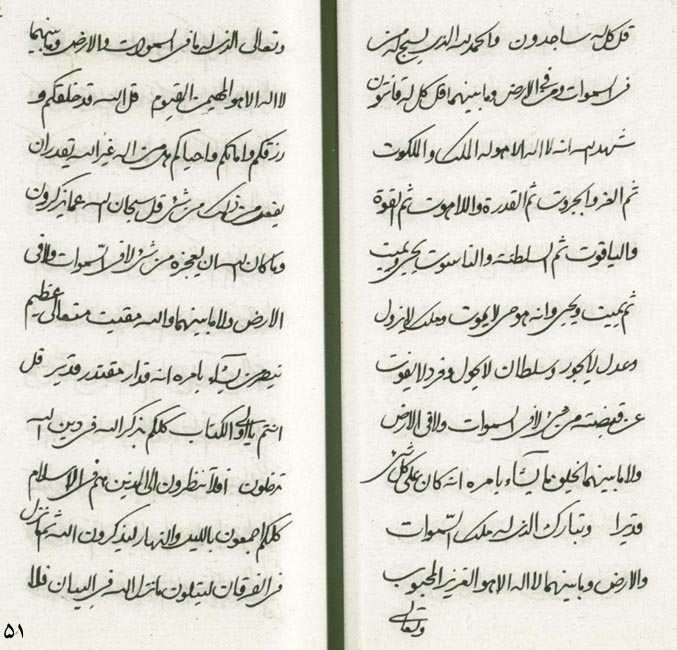 قل كل له ساجدون والحمد لله الذي يسبح له من
في السموات ومن في الارض وما بينهما قل كل له قانتون
شهد الله انه لا اله الا هو له الملك والملكوت
ثم العز والجبروت ثم القدرة واللاهوت ثم القوة
والياقوت ثم السلطنة والناسوت يحيي ويميت
ثم يميت ويحيي وانه هو حي لا يموت وملك لا يزول
وعدل لا يجور وسلطان لا يحول وفرد لا يفوت
عن قبضته من شيء لا في السموات ولا في الارض
ولا ما بينهما يخلق ما يشاء بامره انه كان على كل شيء
قديرا وتبارك الذي له ملك السموات
والارض وما بينهما لا اله الا هو العزيز المحبوب
وتعالى
وتعالى الذي له ما في السموات والارض وما بينهما
لا اله الا هو المهيمن القيوم قل الله قد خلقكم و
رزقكم واماتكم واحياكم هل من اله غير الله يقدر ان
يفعل من ذلك من شيء قل سبحان الله عما يذكرون
وما كان الله ان يعجزه من شيء لا في السموات ولا في
الارض ولا ما بينهما والله مقيت متعالي عظيم
ينصر من يشاء بامره انه قدار مقتدر قدير قل
انتم يا اولي الكتاب كلكم بذكر الله في دين الله
ترضون افلا تنظرون الى الذين هم في الاسلام
كلكم اجمعون بالليل والنهار ليذكرون الله ثم ما نزل
في الفرقان ليتلون ما نزل الله في البيان فلا
۵۱